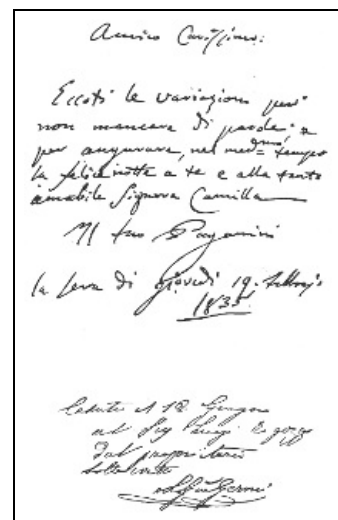 Amico Cariſsimo:
Eccoti le variazioni per
non mancare di parola; e
per augurare, nel med.mo tempo
la felice notte a te e alla tanto
amabile Signora Camilla
Il tuo Paganini
la sera di giovedì 19. febbrajo
1835
Ceduto il 12 Giugno
al Sig Luigi
dal proprietario
sottoscritto